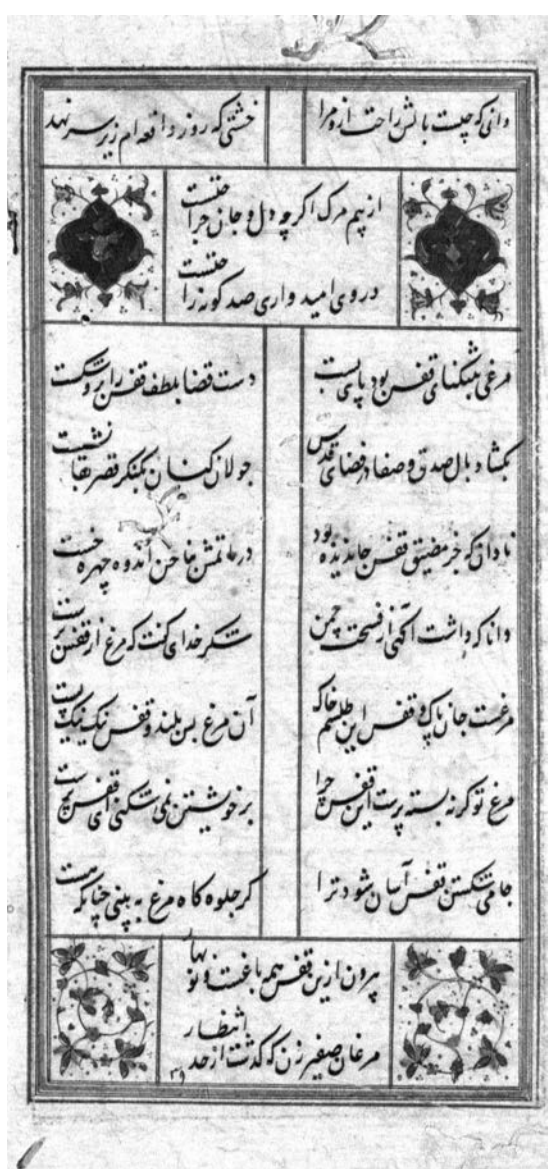 دانی که چیست بالش راحت ازو مرا خشتی که روز واقعه‌ام زیر سر نهد
از بیم مرک اکر چه دل و جان جراحتست
در وی امیدواری صد کونه راحتست
مرغی بتنکنای قفس بود پای بست دست قضا بلطف قفس را برو شکست
بکشاد بال صدق و صفا در فضای قدس جولان کنان بکنکر قصر بقا نشست
نادان که جز مضیق قفس جا ندیده بود در ماتمش بناخن اندوه چهره خست
دانا که داشت آکهی از فسحت چمن شکر خدای کفت که مرغ از قفس برست
مرغست جان پاک و قفس این طلسم خاک آن مرغ بس بلند و قفس نیک نیک پست
مرغ تو کر نه بسته پرست این قفس چرا بر خویشتن نمی شکنی ای قفس پرست
جامی شکستن قفس آسان شود ترا کر جلوه کاه مرغ به بینی چنانکه هست
بیرون ازین قفس همه باغست و نوبهار
مرغان صفیر زن که کذشت از حد انتظار